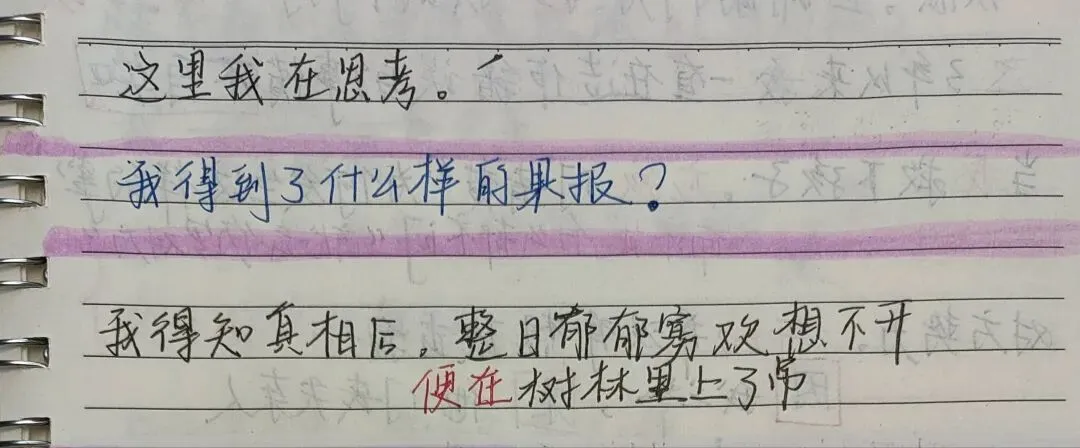 这里我在思考。
我得到了什么样的果报？
我得知真相后，整日郁郁寡欢想不开
便在树林里上了吊